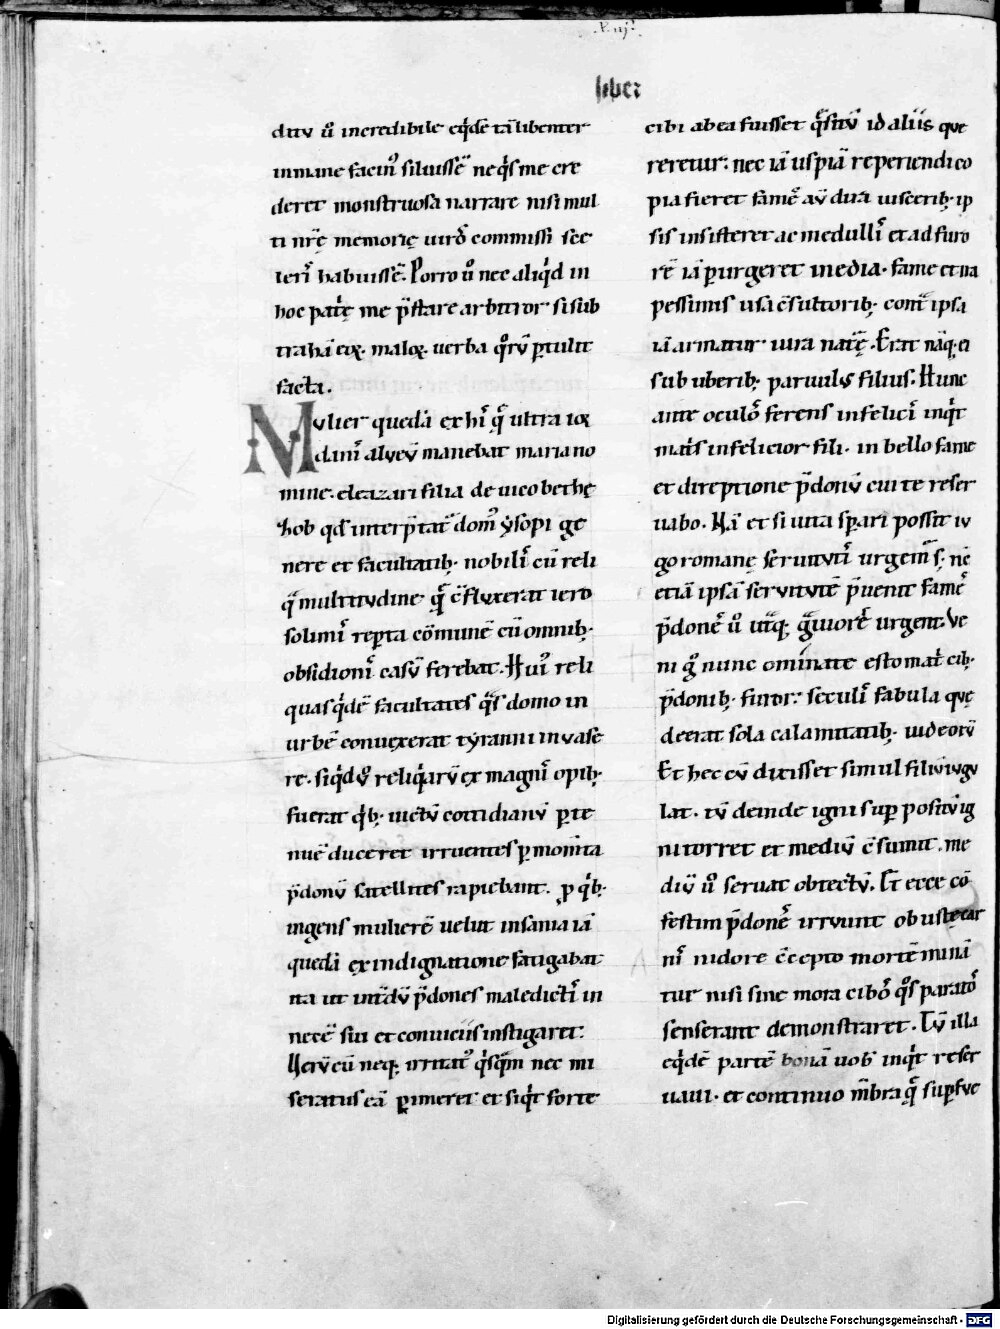 liber
ditu ů incredibile eq̇dē tā libenter
inmane facin᷒ siluissē neq̇s me cre
deret monstruosa narrare nisi mul
ti nr̄ę memorię uirō commissi sce
leri᷒ habuissē. Porro ů nec aliq̇d in
hoc pat̄ę me p̄stare arbitror si sub
trahā eiꝝ. maloꝝ. uerba qͦrū ꝑtulit
facta.
Mulier quedā ex hi᷒ qͣ ultra ior
dani᷒ alueū manebat maria no
mine. eleazari filia de uico bethe
hob qd̄ interp̄tat᷒ dom᷒ ysopi ge
nere et facultatib; nobili᷒ cū reli
qͣ multitudine qͣ c̄fluxerat iero
solimi᷒ rep̱ta cōmunē cū omnib;
obsidioni᷒ casū ferebat. Hui᷒ reli
quas q̇dē facultates qͣs domo in
urbē conuexerat tyranni inuase
re. siq̇d ů reliq̇arū ex magni᷒ opib;
fuerat q̇b; uictū cottidianū ꝑ te
nuē duceret irruentes ꝑ momīta
p̄donū satellites rapiebant. ꝓ q̇b;
ingens mulierē uelut insania iā
quedā ex indignatione fatigabat
ita ut int̄dū p̄dones maledicti᷒ in
necē sui et conuiciis instigaret:
Uerū cū neq; irritat᷒ q̇sq̄m nec mi
seratus eā ꝑimeret et siq̇t forte
cibi ab ea fuisset qͣsitū id aliis que
reretur: nec iā uspiā reperiendi co
pia fieret famē᷒ aū dira uiscerib; ip
sis insisteret ac medulli᷒ et ad furo
rē iā ꝑurgeret inedia. fame et ira
pessimis usa c̄sultorib; cont̄ ipsa
iā armatur iura nat̄ę. Erat nāq; ei
sub uberib; paruulus filius. Hunc
ante oculō᷒ ferens infelici᷒ inq̇t
mat̄is infelicior fili. in bello fame
et direptione p̄donū cui te reser
uabo. Nā et si uita spari possit iu
go romanę seruituti᷒ urgem᷒. nē
etiā ipsā seruitutē p̄uenit famē᷒
p̄donē᷒ ů utͣq; grͣuiorē᷒ urgent. Ve
ni gͦ nunc o mi nate esto mat̄ cib;
p̄donib; furor: seculi᷒ fabula quę
deerat sola calamitatib; iudeorū
Et hec cū dixisset simul filiū iugu
lat. tū deinde igni supꝑ positū ig
ni torret et mediū c̄sumit. me
diū ů seruat obtectū. Et ecce cō
festim p̄donē᷒ irruunt ob ustę car
ni᷒ nidore c̄cepto mortē minā
tur nisi sine mora cibō᷒ qͦs paratō᷒
senserant demonstraret. Tū illa
eq̇dē partē bonā uob᷒ inq̇t reser
uaui. et continuo mēbra qͣ supfue
Digitalisierung gefördert durch die Deutsche Forschungsgemeinschaft - DFG